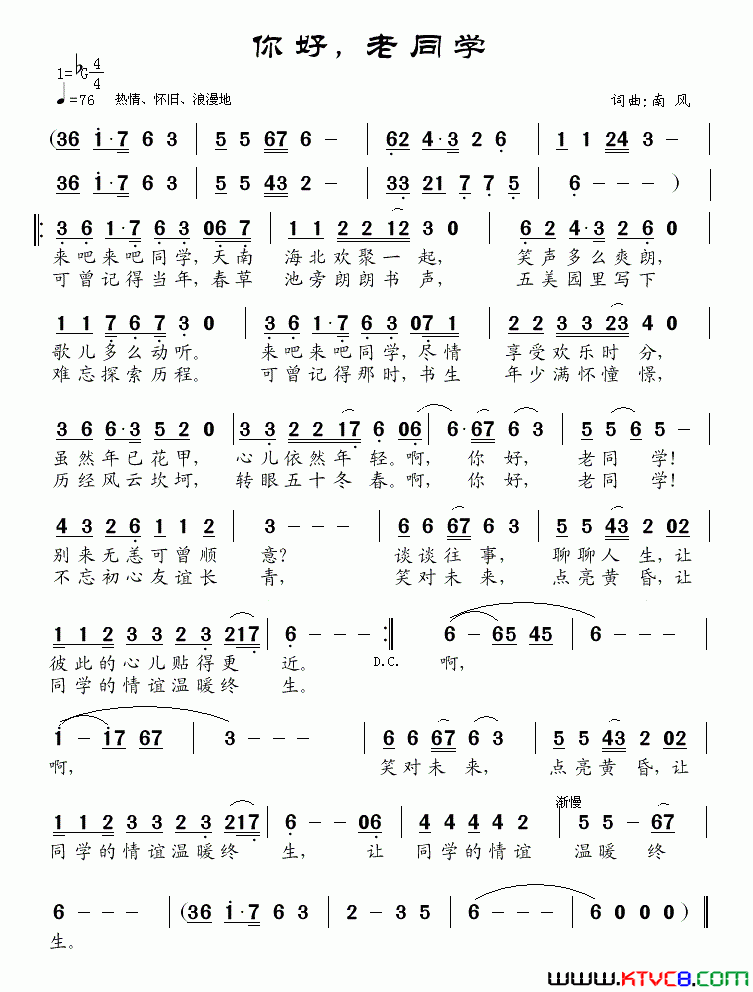 你好，老同学
1=♭G 4/4
♩=76 热情、怀旧、浪漫地 词曲:南 风
(36 i·7 6 3 | 5 5 67 6 － | 62 4·3 2 6 | 1 1 24 3 － |
36 i·7 6 3 | 5 5 43 2 － | 33 21 7 7 5 | 6 － － ) |
‖: 3 6 1·7 6 3 06 7 | 1 1 2 2 12 3 0 | 6 2 4·3 2 6 0 |
来吧来吧同学,天南 海北欢聚一起, 笑声多么爽朗,
可曾记得当年,春草 池旁朗朗书声, 五美园里写下
1 1 7 6 7 3 0 | 3 6 1·7 6 3 07 1 | 2 2 3 3 23 4 0 |
歌儿多么动听。 来吧来吧同学,尽情 享受欢乐时分,
难忘探索历程。 可曾记得那时,书生 年少满怀憧憬,
3 6 6·3 5 2 0 | 3 3 2 2 17 6 06 | 6·67 6 3 | 5 5 6 5 － |
虽然年已花甲, 心儿依然年轻。啊, 你好, 老同学!
历经风云坎坷, 转眼五十冬春。啊, 你好, 老同学!
4 3 2 6 1 1 2 | 3 － － | 6 6 67 6 3 | 5 5 43 2 02 |
别来无恙可曾顺 意? 谈谈往事, 聊聊人生,让
不忘初心友谊长 青, 笑对未来, 点亮黄昏,让
1 1 2 3 3 2 3 217 | 6 － － － :‖ 6 － 65 45 | 6 － － － |
彼此的心儿贴得更 近。 D.C. 啊,
同学的情谊温暖终 生。
i － i7 67 | 3 － － － | 6 6 67 6 3 | 5 5 43 2 02 |
啊, 笑对未来, 点亮黄昏,让
渐慢
1 1 2 3 3 2 3 217 | 6 － － 06 | 4 4 4 4 4 2 | 5 5 － 67 |
同学的情谊温暖终 生, 让 同学的情谊 温暖终
6 － － － | (36 i·7 6 3 | 2 － 3 5 | 6 － － － | 6 0 0 0) ‖
生。
www.KTVC8.com